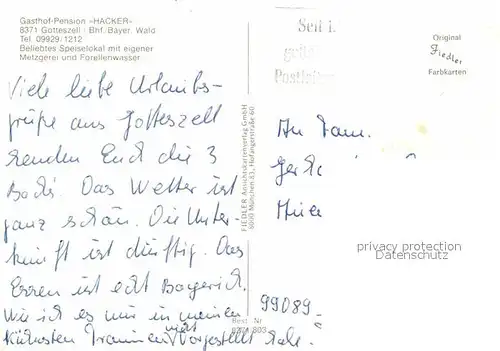 Gasthof-Pension »HACKER«
8371 Gotteszell · Bhf./Bayer. Wald
Tel. 09929/1212
Beliebtes Speiselokal mit eigener
Metzgerei und Forellenwasser
Viele liebe Urlaubs-
grüße aus Gotteszell
senden Euch die 3
Das Wetter ist
ganz schön. Die Unter-
kunft ist dürftig. Das
Essen ist echt Bayerisch.
Wie ich es mir in meinen
kühnsten Träumen nicht vorgestellt habe.
FIEDLER Ansichtskartenverlag GmbH
8000 München 83, Hofangerstraße 60
Seit 1.
Postleitza
Original
Fiedler
Farbkarten
An Fam.
privacy protection
Datenschutz
99089
Best. Nr.
8371 803